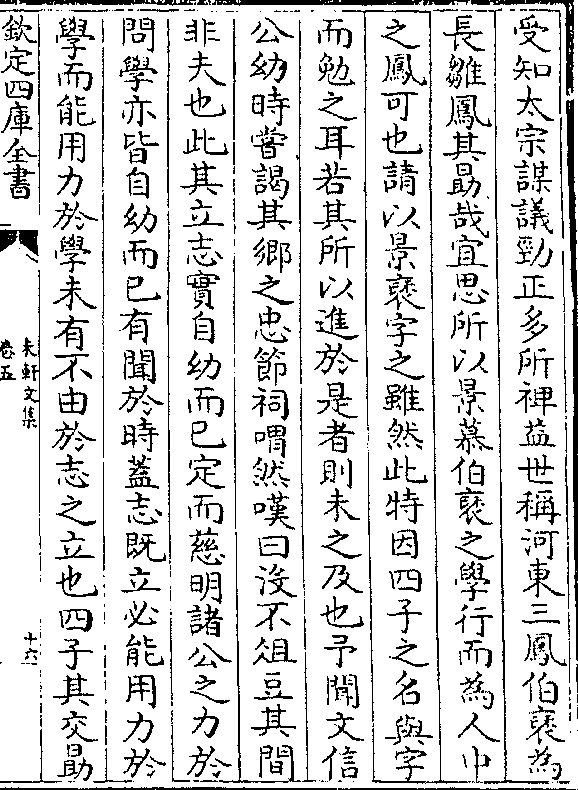 受知太宗謀議勁正多所裨益世稱河東三鳳伯褒為
長雛鳳其勗哉宜思所以景慕伯褒之學行而為人中
之鳳可也請以景褒字之雖然此特因四子之名與字
而勉之耳若其所以進於是者則未之及也予聞文信
公幼時嘗謁其鄉之忠節祠喟然嘆曰沒不俎豆其間
非夫也此其立志實自幼而已定而慈明諸公之力於
問學亦皆自幼而已有聞於時蓋志既立必能用力於
學而能用力於學未有不由於志之立也四子其交勗
欽定四庫全書
未軒文集
卷五
十六